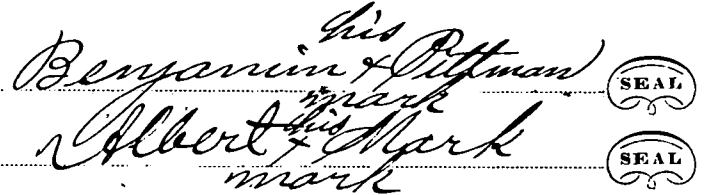 his
Benjamin + Pittman SEAL
mark
his
Albert + Mark SEAL
mark